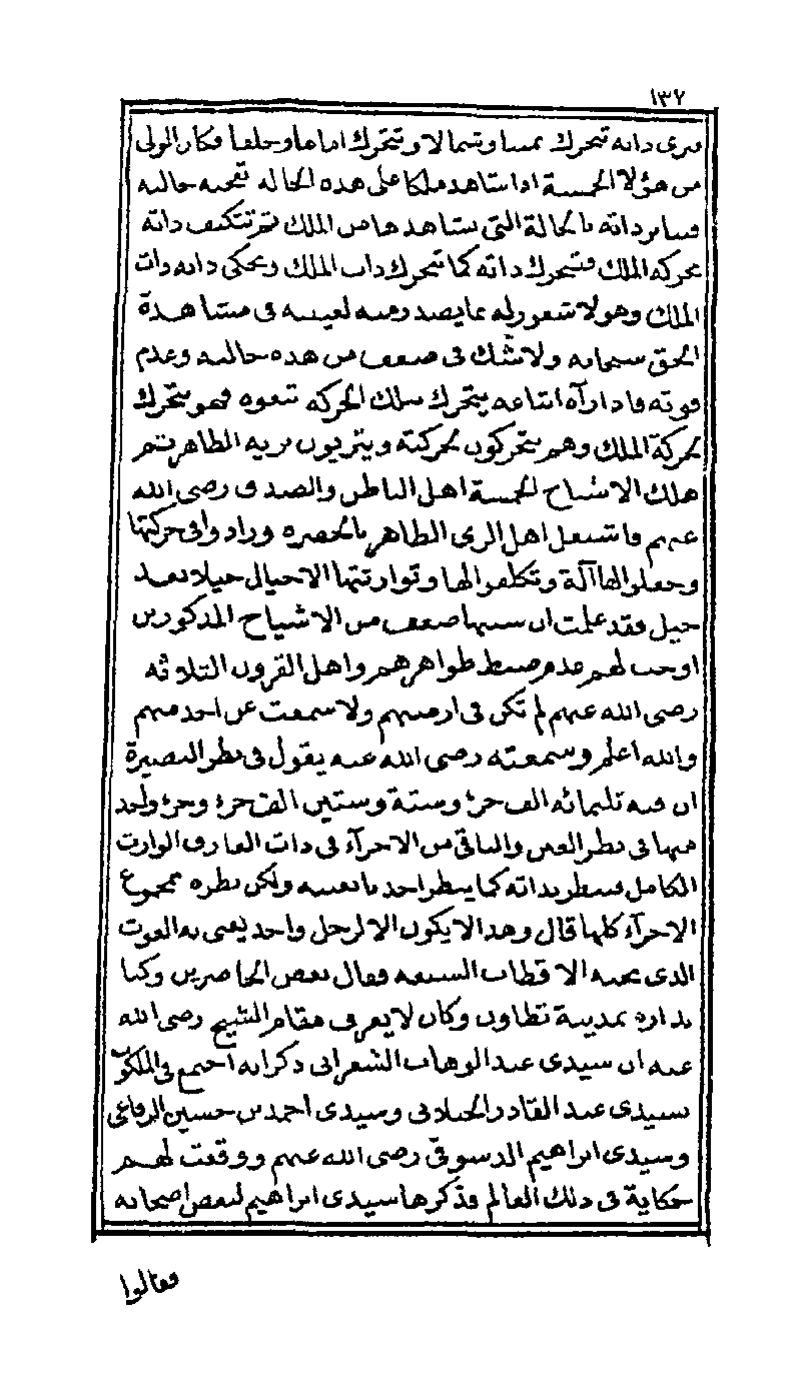 ١٣٢
فيرى ذاته تتحرك يمينا وشمالا وتتحرك اماما وخلفا فكان الولى
من هؤلا الخمسة اذا شاهد ملكا على هذه الحاله تعجبه حالته
فتتأثر ذاته بالحالة التى يشاهدها من الملك ثم تتكيف ذاته
بحركه الملك فتتحرك ذاته كما تتحرك ذات الملك وتحكى ذاته ذات
الملك وهو لا شعور له بما يصدر منه لغيبته فى مشاهدة
الحق سبحانه ولا شك فى ضعف من هذه حالته وعدم
قوته فاذا رآه اتباعه يتحرك بتلك الحركه تبعوه فهو يتحرك
لحركة الملك وهم يتحركون لحركته ويتزيون بزيه الظاهر ثم
هلك الاشياخ الخمسة اهل الباطن والصدق رضى الله
عنهم فاشتغل اهل الزى الظاهر بالحضره وزادوا فى حركتها
وجعلوا لها آلة وتكلفوا لها وتوارثتها الاجيال جيلا بعد
جيل فقد علمت ان سببها ضعف من الاشياخ المذكورين
اوجب لهم عدم ضبط ظواهرهم واهل القرون الثلاثه
رضى الله عنهم لم تكن فى ازمنتهم ولا سمعت عن احد منهم
والله اعلم وسمعته رضى الله عنه يقول فى نظر البصيرة
ان فيه ثلثمائه الف جزء وستة وستين الف جزء وجزء واحد
منها فى نظر العين والباقى من الاجزآء فى ذات العارف الوارث
الكامل فينظر بذاته كما ينظر احدنا بعينيه ولكن نظره بمجموع
الاجزآء كلها قال وهذا لا يكون الا لرجل واحد يعنى به الغوث
الذى تحته الاقطاب السبعه فقال بعض الحاضرين وكنا
بداره بمدينة تطاون وكان لا يعرف مقام الشيخ رضى الله
عنه ان سيدى عبد الوهاب الشعرانى ذكر انه اجتمع فى الملكوت
بسيدى عبد القادر الجيلانى وسيدى احمد بن حسين الرفاعى
وسيدى ابراهيم الدسوقى رضى الله عنهم ووقعت لهم
حكاية فى ذلك العالم فذكرها سيدى ابراهيم لبعض اصحابه
فقالوا